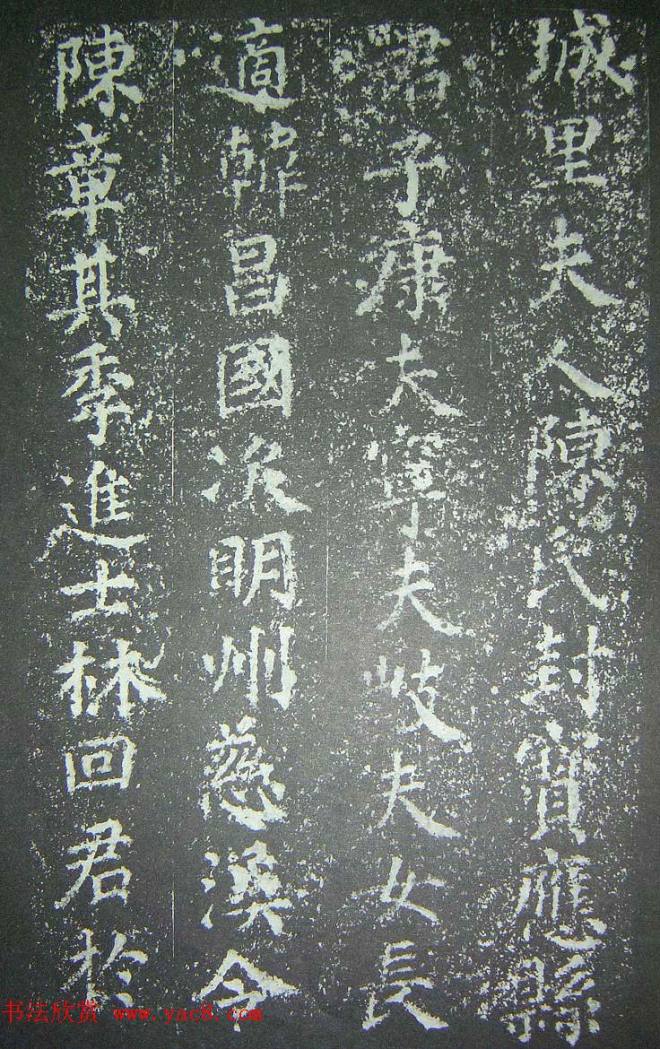 城里夫人陳氏封寶應縣
君子康夫寧夫岐夫女長
適韓昌國次明州慈溪令
陳章其季進士林回君於
书法欣赏 www.yac8.com